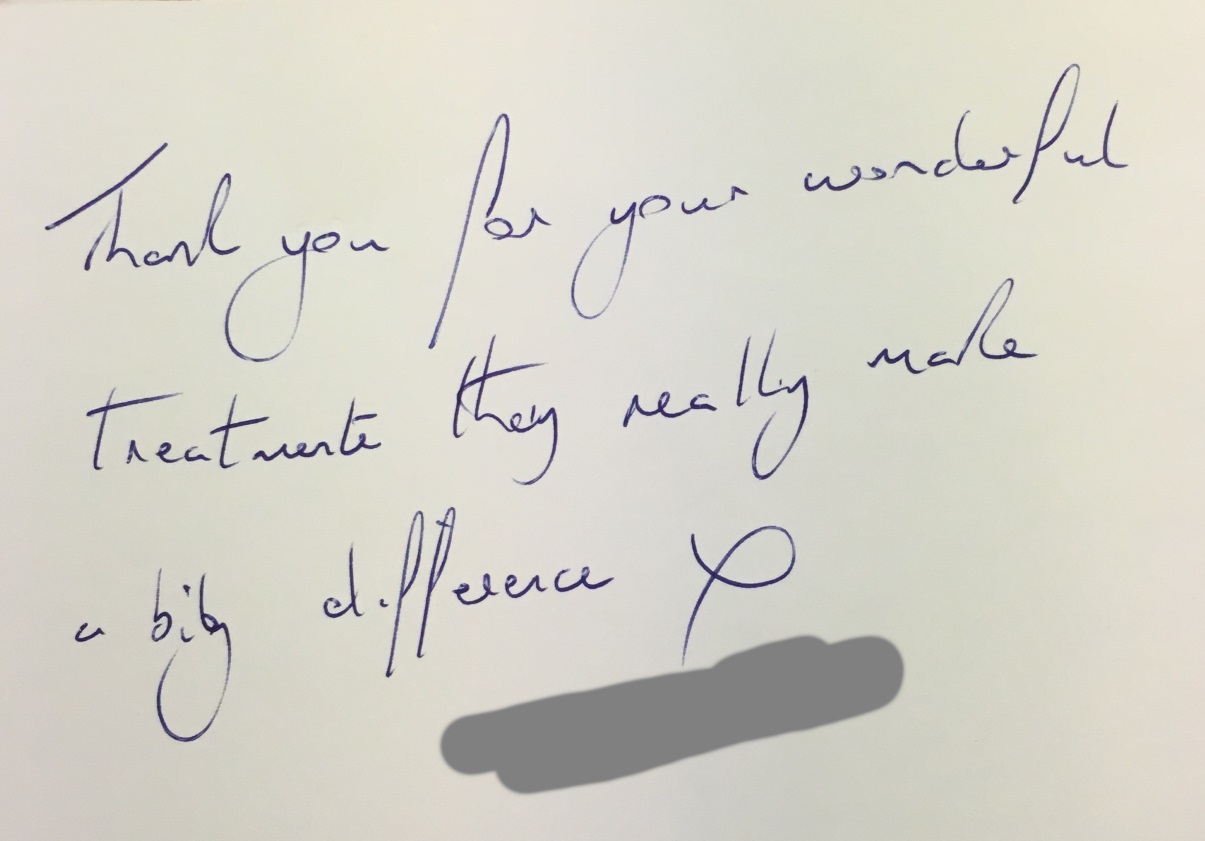 Thank you for your wonderful
Treatments they really make
a big difference x